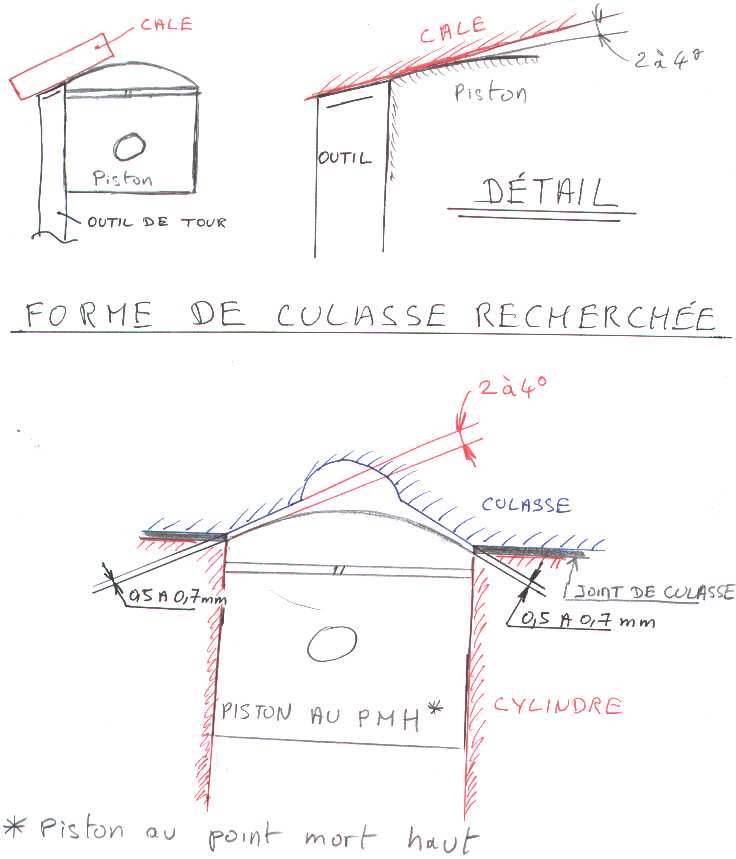 CALE
CALE
2 à 4°
Piston
OUTIL
Piston
DÉTAIL
OUTIL DE TOUR
FORME DE CULASSE RECHERCHÉE
2 à 4°
CULASSE
0,5 A 0,7 mm
JOINT DE CULASSE
0,5 A 0,7 mm
PISTON AU PMH*
CYLINDRE
* Piston au point mort haut